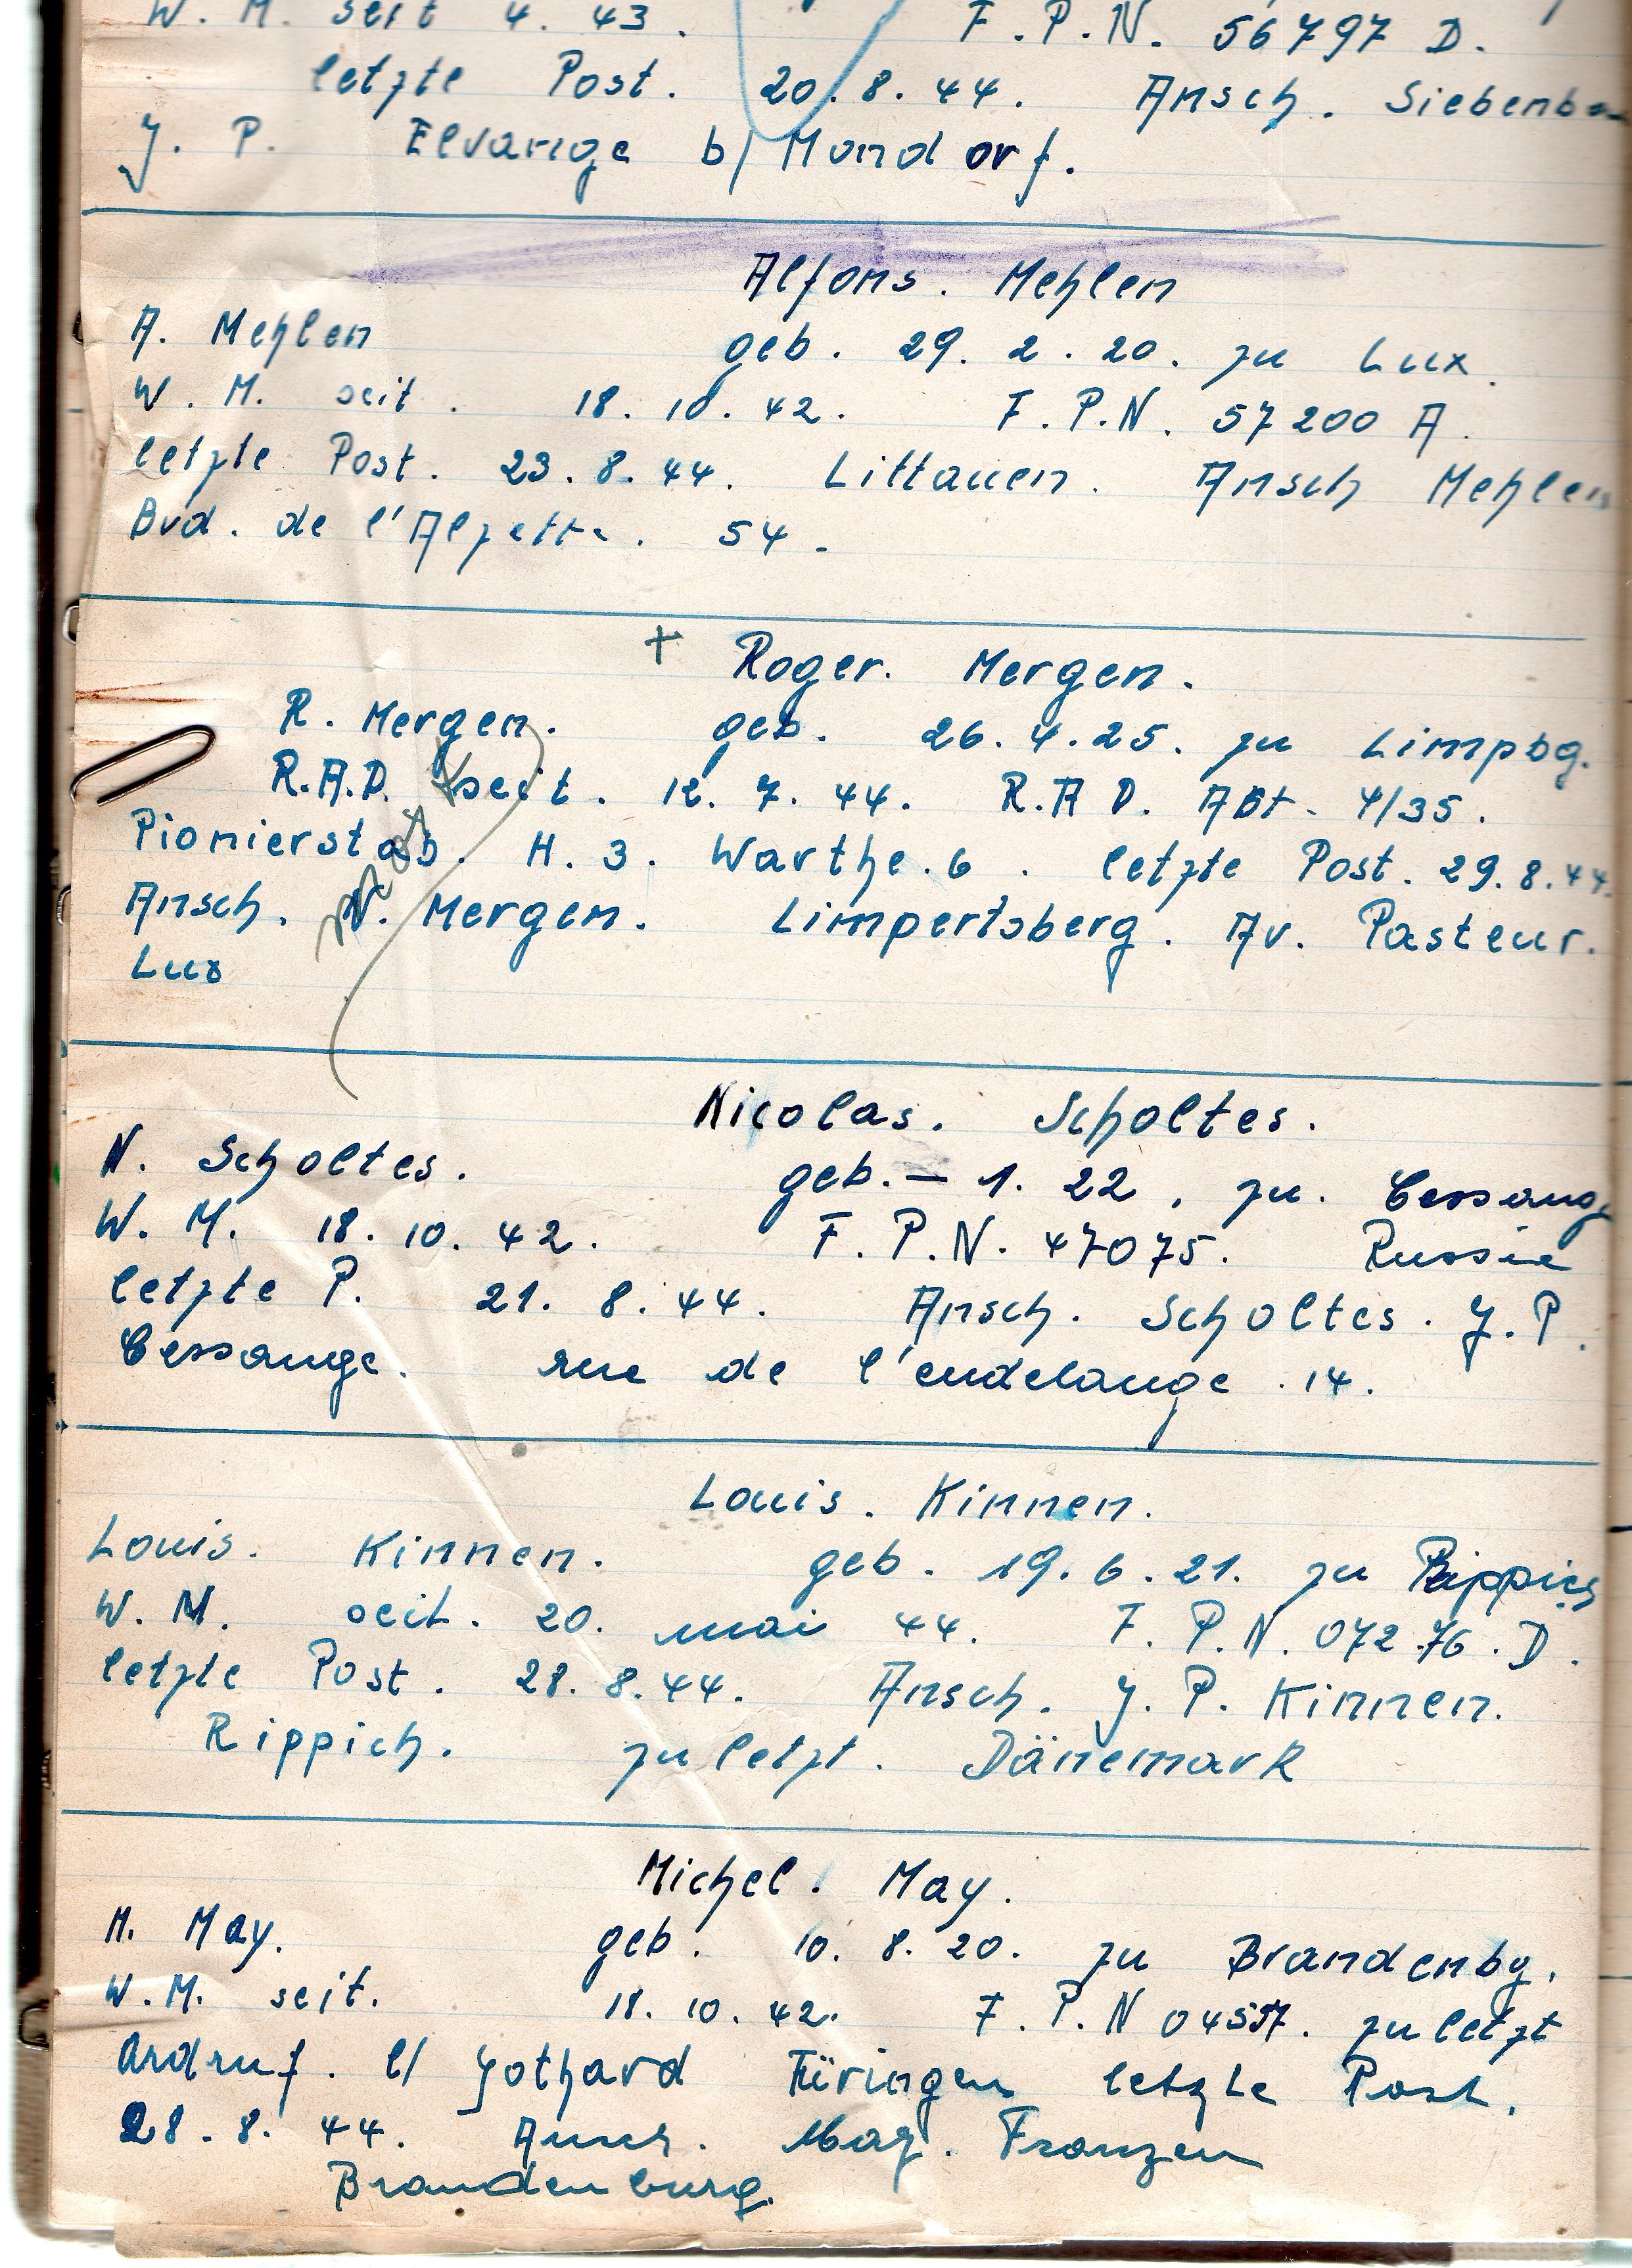 W. M. seit 4. 43. F. P. N. 56797 D.
letzte Post. 20. 8. 44. Ansch. Siebenb
J. P. Elvange b/ Mondorf.
Alfons. Mehlen
A. Mehlen geb. 29. 2. 20. zu Lux.
W. M. seit. 18. 10. 42. F. P. N. 57200 A.
letzte Post. 23. 8. 44. Littauen. Ansch Mehlen
Bvd. de l'Alzette. 54.
+ Roger. Mergen.
R. Mergen. geb. 26. 4. 25. zu Limpbg.
R.A.D. seit. 12. 7. 44. R.A D. Abt. 4/35.
Pionierstab. H. 3. Warthe. 6. letzte Post. 29. 8. 44.
Ansch. N. Mergen. Limpertsberg. Av. Pasteur.
Lux
Nicolas. Scholtes.
N. Scholtes. geb. — 1. 22, zu. Cessang
W. M. 18. 10. 42. F. P. N. 47075. Russie
letzte P. 21. 8. 44. Ansch. Scholtes. J. P.
Cessange. rue de l'eudelange. 14.
Louis. Kinnen.
Louis. Kinnen. geb. 19. 6. 21. zu Rippich
W. M. seit. 20. mai 44. F. P. N. 07276. D.
letzte Post. 28. 8. 44. Ansch. J. P. Kinnen.
Rippich. zuletzt. Dänemark
Michel. May.
M. May. geb. 10. 8. 20. zu Brandenbg.
W. M. seit. 18. 10. 42. F. P. N zuletzt
Ardruf. b/ Gothard Türingen letzte Post.
28. 8. 44. May. Franzen
Brandenburg.